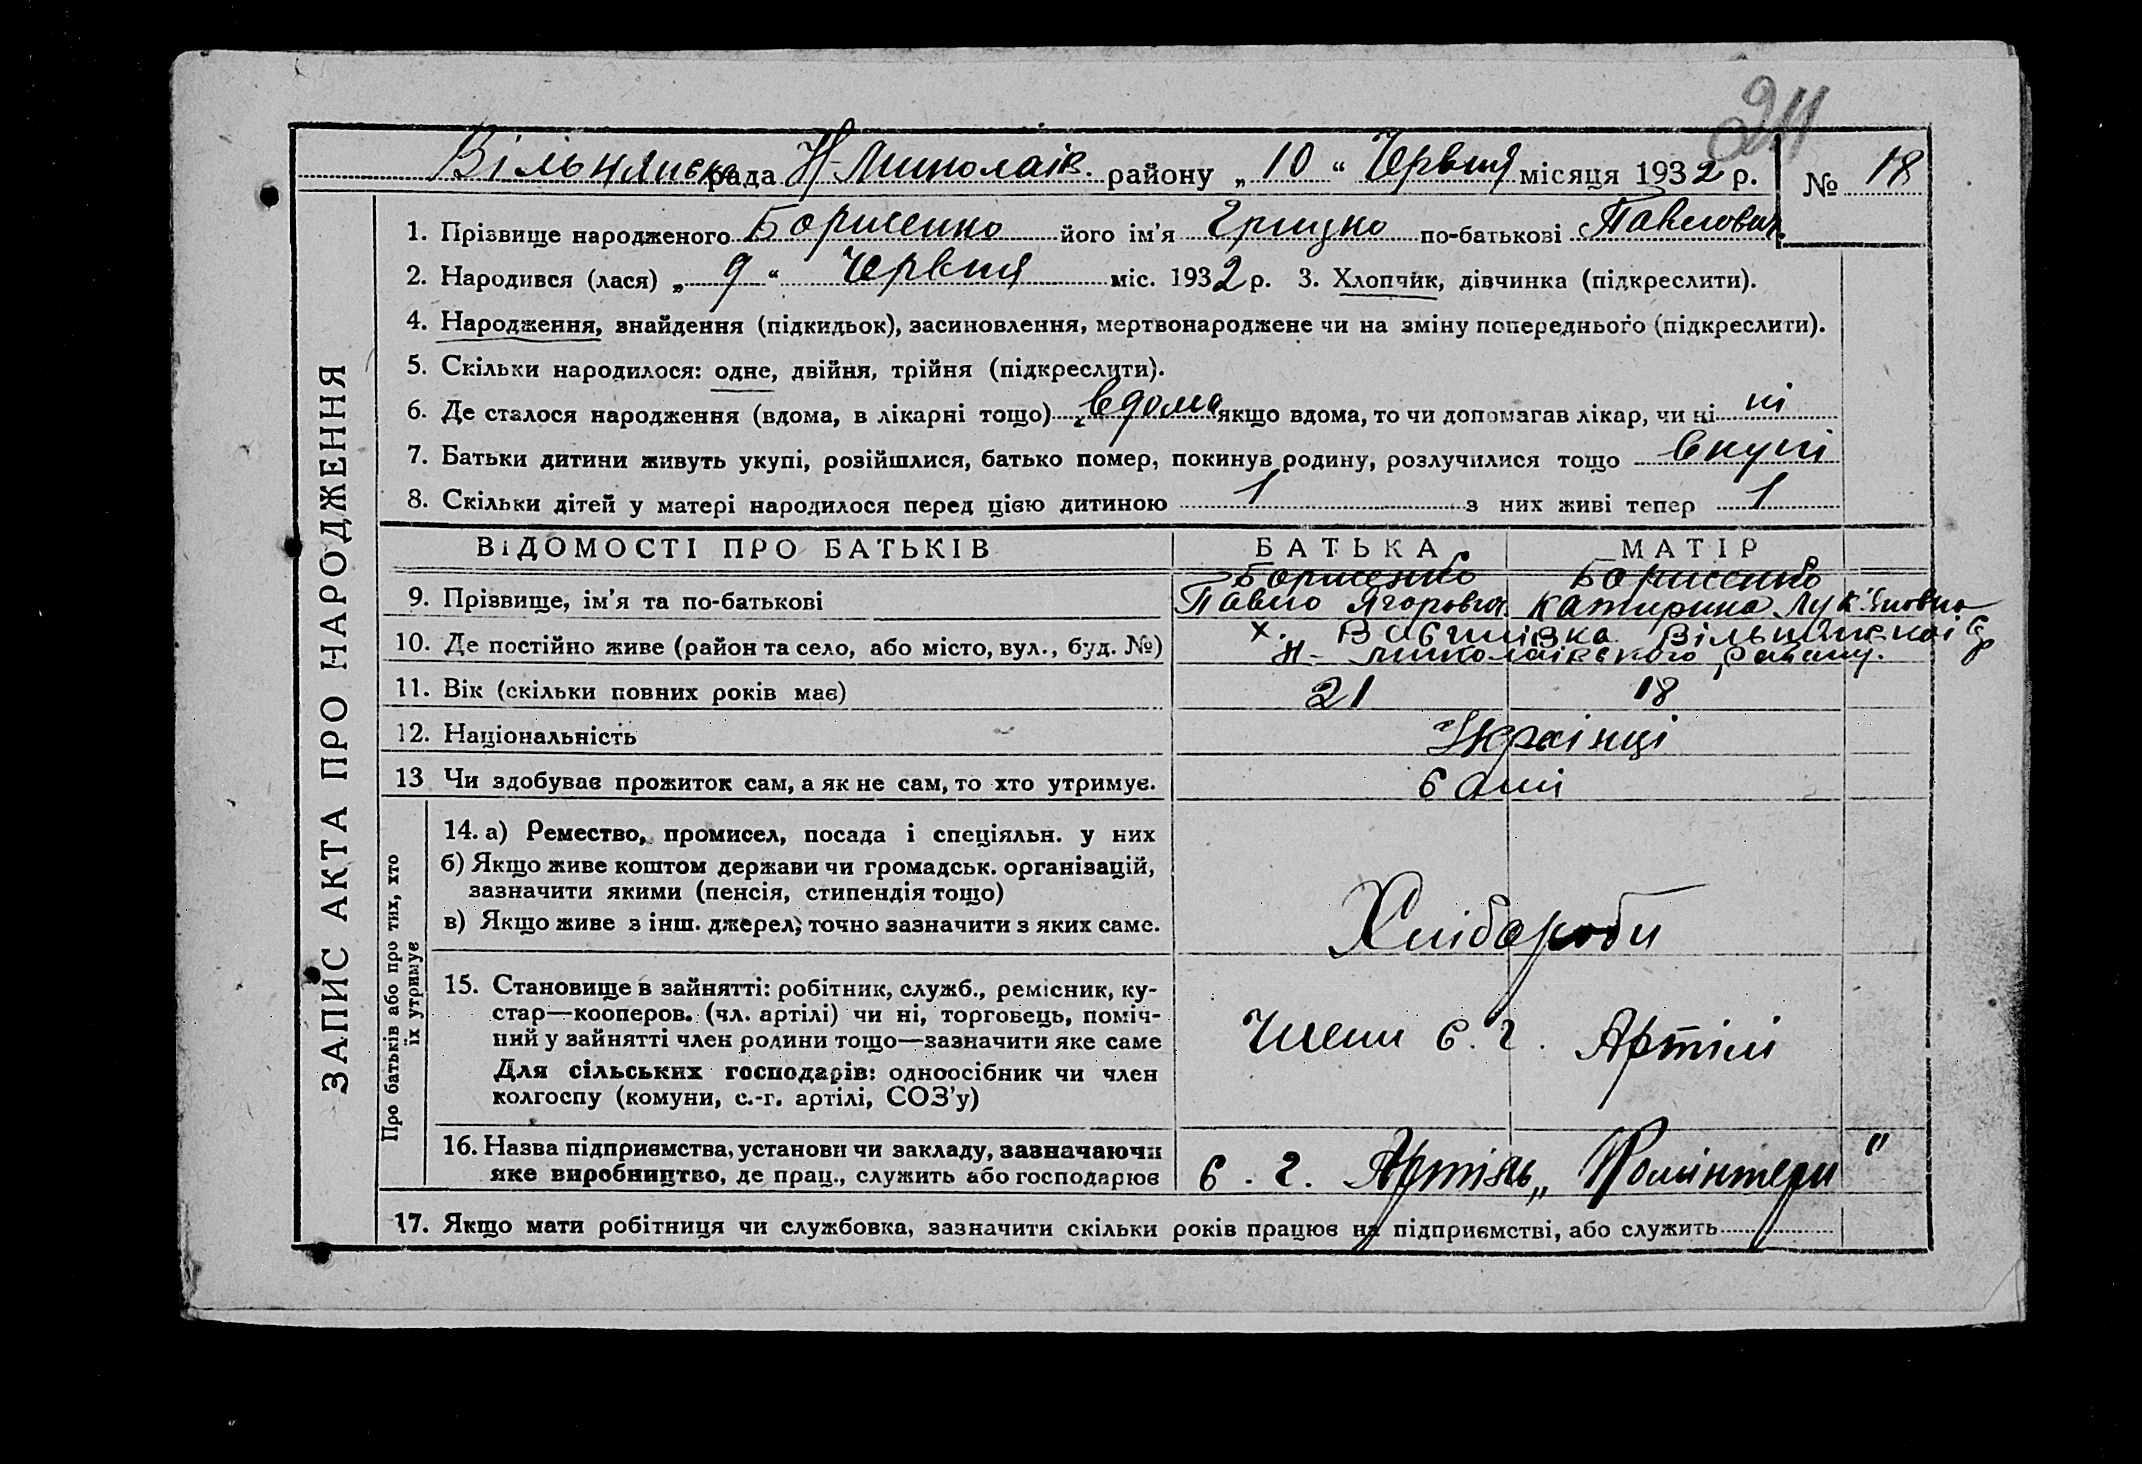 24
Вільнянська рада Н-Миколаїв. району „ 10 “ Червня місяця 1932 р. № 18
ЗАПИС АКТА ПРО НАРОДЖЕННЯ
1. Прізвище народженого Борисенко його ім’я Грицко по-батькові Павлович.
2. Народився (лася) „ 9 “ Червня міс. 1932 р. 3. Хлопчик, дівчинка (підкреслити).
4. Народження, знайдення (підкидьок), засиновлення, мертвонароджене чи на зміну попереднього (підкреслити).
5. Скільки народилося: одне, двійня, трійня (підкреслити).
6. Де сталося народження (вдома, в лікарні тощо) вдома якщо вдома, то чи допомагав лікар, чи ні ні
7. Батьки дитини живуть укупі, розійшлися, батько помер, покинув родину, розлучилися тощо вкупі
8. Скільки дітей у матері народилося перед цією дитиною 1 з них живі тепер 1
ВіДОМОСТІ ПРО БАТЬКІВ БАТЬКА МАТІР
Борисенко Борисенко
9. Прізвище, ім’я та по-батькові Павло Ягорович Катирина Лук'яновна
х. Вільнянської Ср
10. Де постійно живе (район та село, або місто, вул., буд. №) Н- Миколаївського району.
11. Вік (скільки повних років має) 21 18
12. Національність Українці
13 Чи здобуває прожиток сам, а як не сам, то хто утримує. самі
Про батьків або про тих, хто
їх утримує
14. а) Ремество, промисел, посада і спеціяльн. у них
б) Якщо живе коштом держави чи громадськ. організацій,
зазначити якими (пенсія, стипендія тощо)
в) Якщо живе з інш. джерел, точно зазначити з яких саме.
Хлібороби
15. Становище в зайнятті: робітник, служб., ремісник, ку-
стар—кооперов. (чл. артілі) чи ні, торговець, поміч-
ний у зайнятті член родини тощо—зазначити яке саме
Для сільських господарів: одноосібник чи член
колгоспу (комуни, с.-г. артілі, СОЗ’у)
Члени с. г. Артілі
16. Назва підприємства, установи чи закладу, зазначаючи
яке виробництво, де прац., служить або господарює
с. г. Артіль „ Комінтерн “
17. Якщо мати робітниця чи службовка, зазначити скільки років працює на підприємстві, або служить